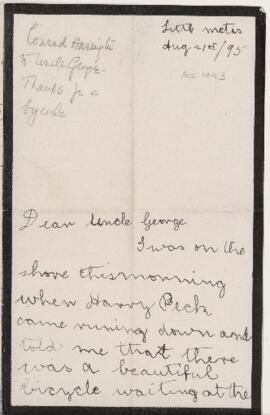 Conrad Harrington
to Uncle George
Thanks for a
bycicle
Little metis
Aug 21st/95
Acc 1443
Dear Uncle George
I was on the
shore this morning
when Harry Peck
came runing down and
told me that there
was a beautiful
bicycle waiting at the